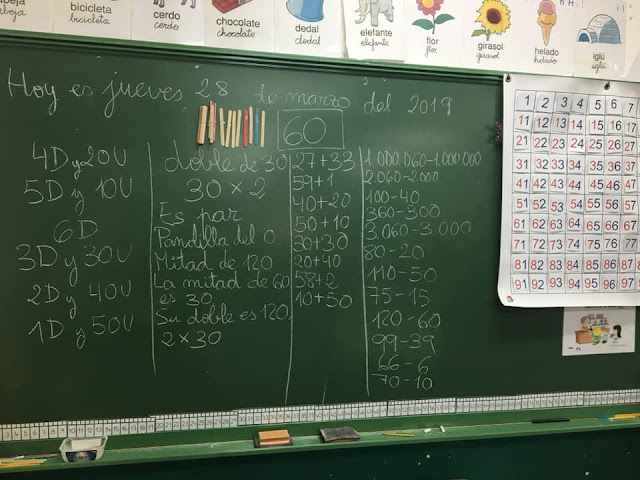 bicicleta
bicicleta
cerdo
cerdo
chocolate
chocolate
dedal
dedal
elefante
elefante
flor
flor
girasol
girasol
helado
helado
iglú
iglú
Hoy es jueves 28 de marzo del 2019
60
4D y 20U
5D y 10U
6D
3D y 30U
2D y 40U
1D y 50U
doble de 30
30 × 2
Es par
Pandilla del 0
Mitad de 120
La mitad de 60
es 30
Su doble es 120
2 × 30
27+33
59+1
40+20
50+10
30+30
20+40
58+2
10+50
1.000.060-1.000.000
2.060-2000
100-40
360-300
3.060-3.000
80-20
110-50
75-15
120-60
99-39
66-6
70-10
1 2 3 4 5 6 7
11 12 13 14 15 16 17
21 22 23 24 25 26 27
31 32 33 34 35 36 37
41 42 43 44 45 46 47
51 52 53 54 55 56 57
61 62 63 64 65 66 67
71 72 73 74 75 76 77
81 82 83 84 85 86 87
91 92 93 94 95 96 97